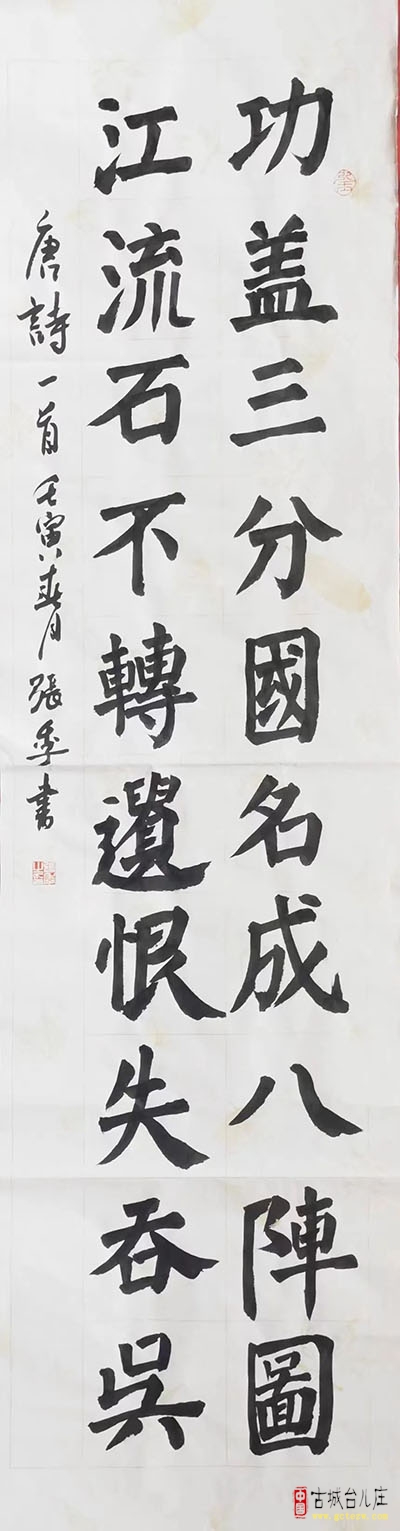 功盖三分國名成八陣圖
江流石不轉遺恨失吞吳
唐詩一首 壬寅春月 張 書
中国 古城台儿庄